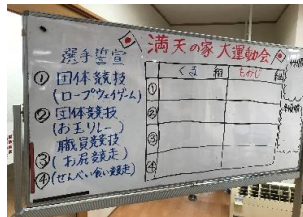 満天の家 大運動会
選手宣言
① 団体競技
(ロープウェイゲーム)
② 団体競技
(お玉リレー
職員競技
③(お尻競走)
④(せんべい食い競走)
くま 組
もみじ 組
①
②
③
④